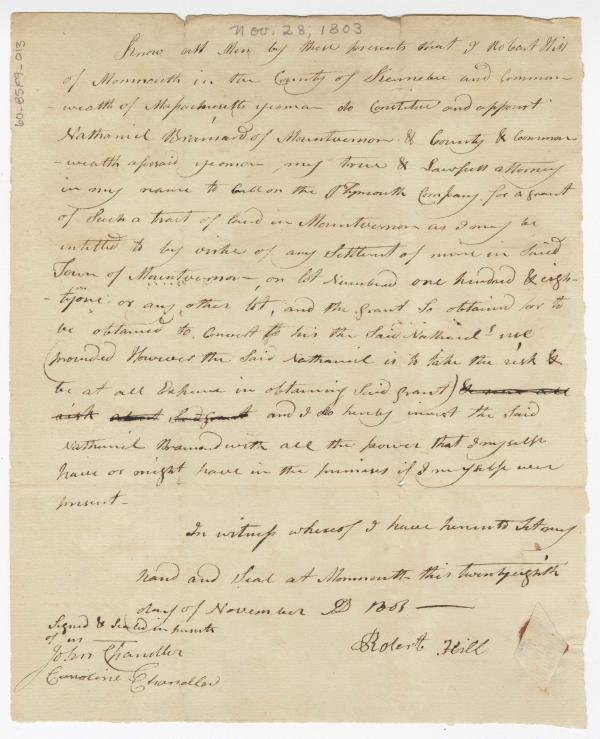 Nov. 28, 1803
60-8589_013
Know all Men by these presents that I Robert Hill
of Monmouth in the County of Kennebec and Common-
-wealth of Massachusetts yeoman do Constitue and appoint
Nathaniel Brainard of Mountvernon & County & Common-
-wealth aforesaid yeoman, my true & Lawfull attorney
in my name to Call on the Plymouth Company for a grant
of Such a tract of land in Mountvernon as I may be
intitled to by virtue of any Settlement of mine in Said
Town of Mountvernon, on lot Numbered one hundred & eigh-
tyone or any other lot, and the grant So obtained or to
be obtained to Convert to his the Said Nathaniel's use
(provided However the Said Nathaniel is to take the risk &
be at all Expence in obtaining Said grant)
risk and I do hereby invest the Said
Nathaniel Brainard with all the power that I myself
have or might have in the premises if I myself were
present-
In witness whereof I have hereunto Set my
hand and Seal at Monmouth this twentyeighth
day of November AD 1803
Signed & Sealed in presents
of us
John Chandler
Caroline Chandler
Robert Hill